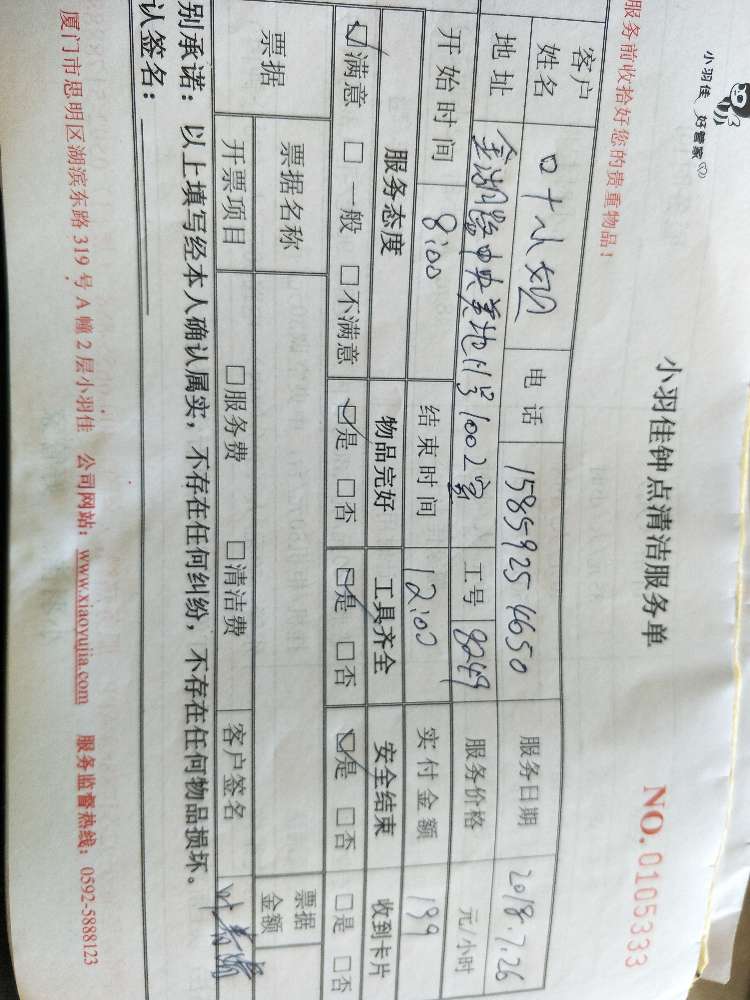 小羽佳 好管家
服务前收拾好您的贵重物品！
小羽佳钟点清洁服务单
NO.0105333
客户姓名 叶小姐 电话 15859254650 服务日期 2018.7.26
地址 金湖路中央美地11号1002室 工号 8249 服务价格 元/小时
开始时间 8:00 结束时间 12:00 实付金额 199
服务态度 物品完好 工具齐全 安全结束 收到卡片
☑满意 □一般 □不满意 ☑是 □否 ☑是 □否 ☑是 □否 □是 □否
票据 票据名称 票据金额
开票项目 □服务费 □清洁费 客户签名
别承诺：以上填写经本人确认属实，不存在任何纠纷，不存在任何物品损坏。
认签名：
厦门市思明区湖滨东路319号A幢2层小羽佳 公司网站：www.xiaoyujia.com 服务监督热线：0592-5888123